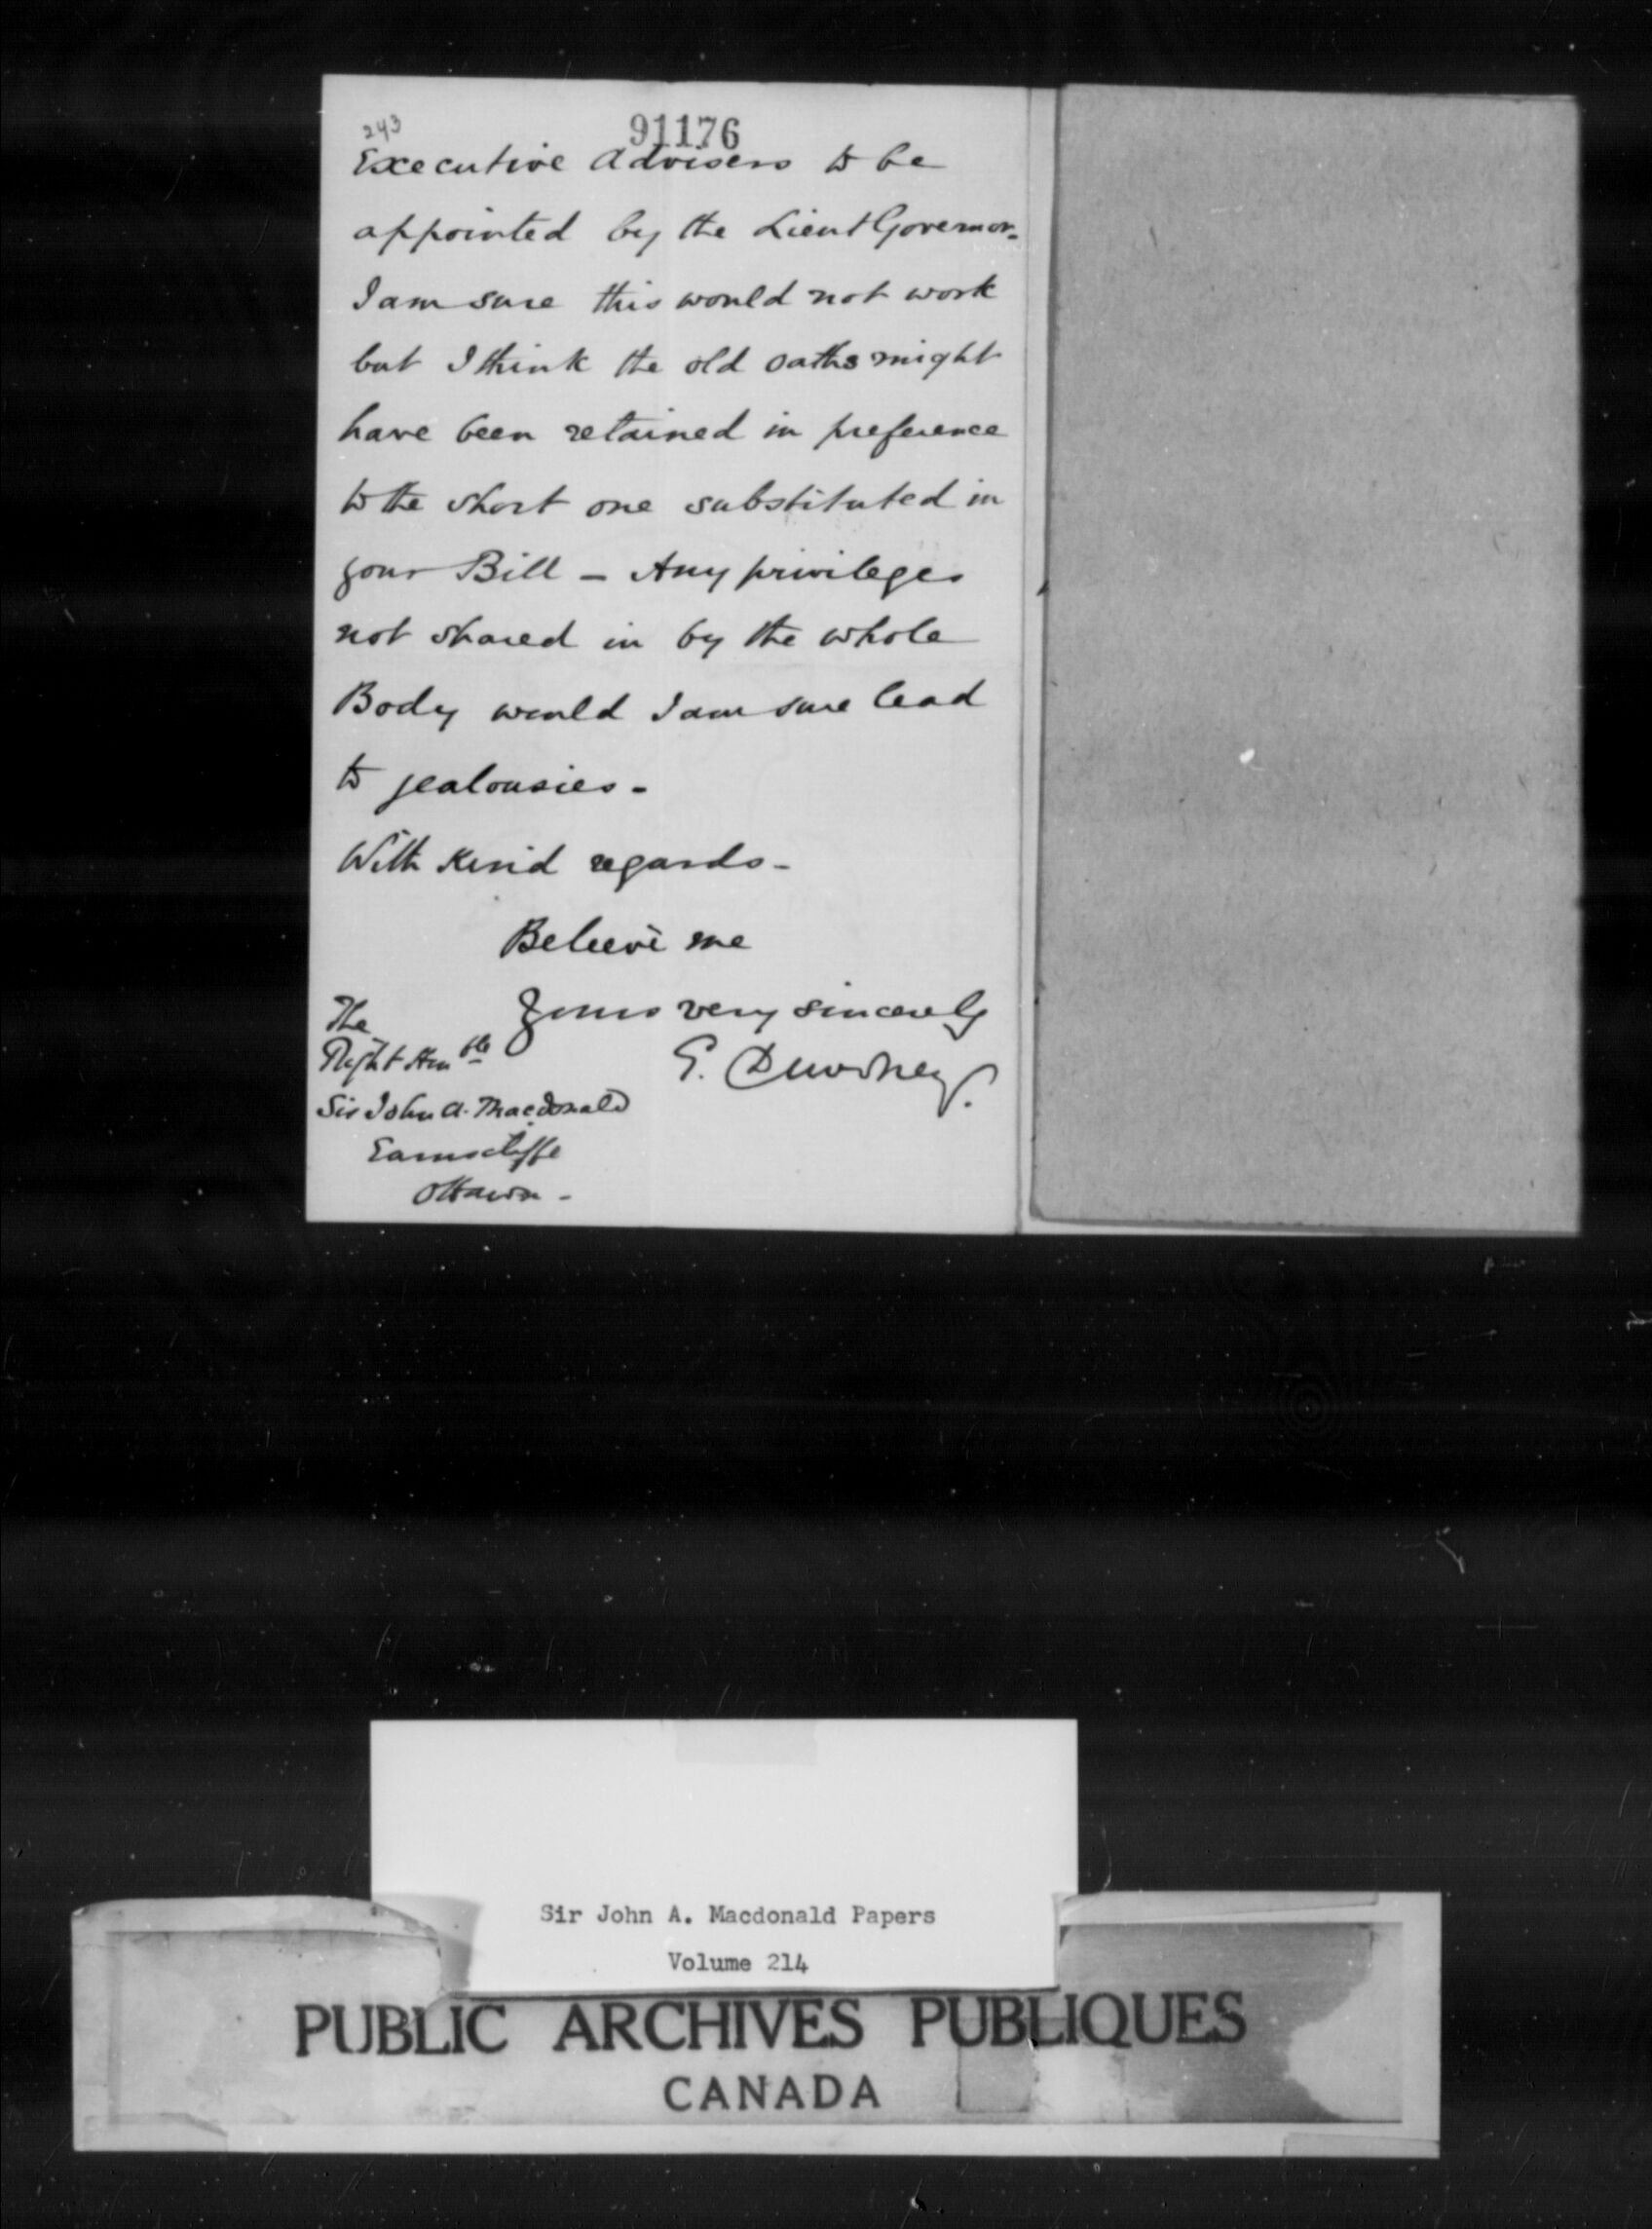 243
91176
Executive Advisers to be
appointed by the Lieut Governor -
I am sure this would not work
but I think the old oaths might
have been retained in preference
to the short one substituted in
your Bill - Any privileges
not shared in by the whole
Body would I am sure lead
to jealousies -
With kind regards -
Believe me
Yours very sincerely
E. Dewdney.
The
Right Honble
Sir John A. Macdonald
Earnscliffe
Ottawa -
Sir John A. Macdonald Papers
Volume 214
PUBLIC ARCHIVES PUBLIQUES
CANADA